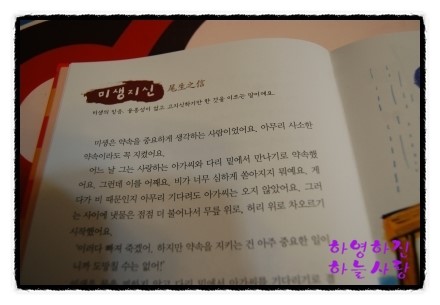 미생지신 尾生之信
미생의 믿음. 융통성이 없고 고지식하기만 한 것을 이르는 말이에요.
미생은 약속을 중요하게 생각하는 사람이었어요. 아무리 사소한
약속이라도 꼭 지켰어요.
어느 날 그는 사랑하는 아가씨와 다리 밑에서 만나기로 약속했
어요. 그런데 이를 어째요. 비가 너무 심하게 쏟아지지 뭐예요. 게
다가 비 때문인지 아무리 기다려도 아가씨는 오지 않았어요. 그러
는 사이에 냇물은 점점 더 불어나서 무릎 위로, 허리 위로 차오르기
시작했어요.
'이러다 빠져 죽겠어. 하지만 약속을 지키는 건 아주 중요한 일이
니까 도망칠 수는 없어!'
다리 밑에서 아가씨를 기다리기로
하영하진
하늘사랑